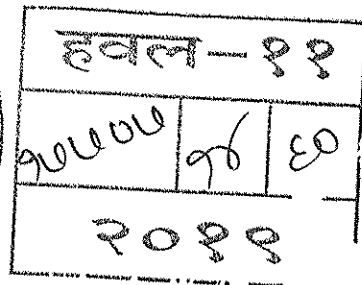 हवल-११
१५५०५ १४ ६०
२०१९